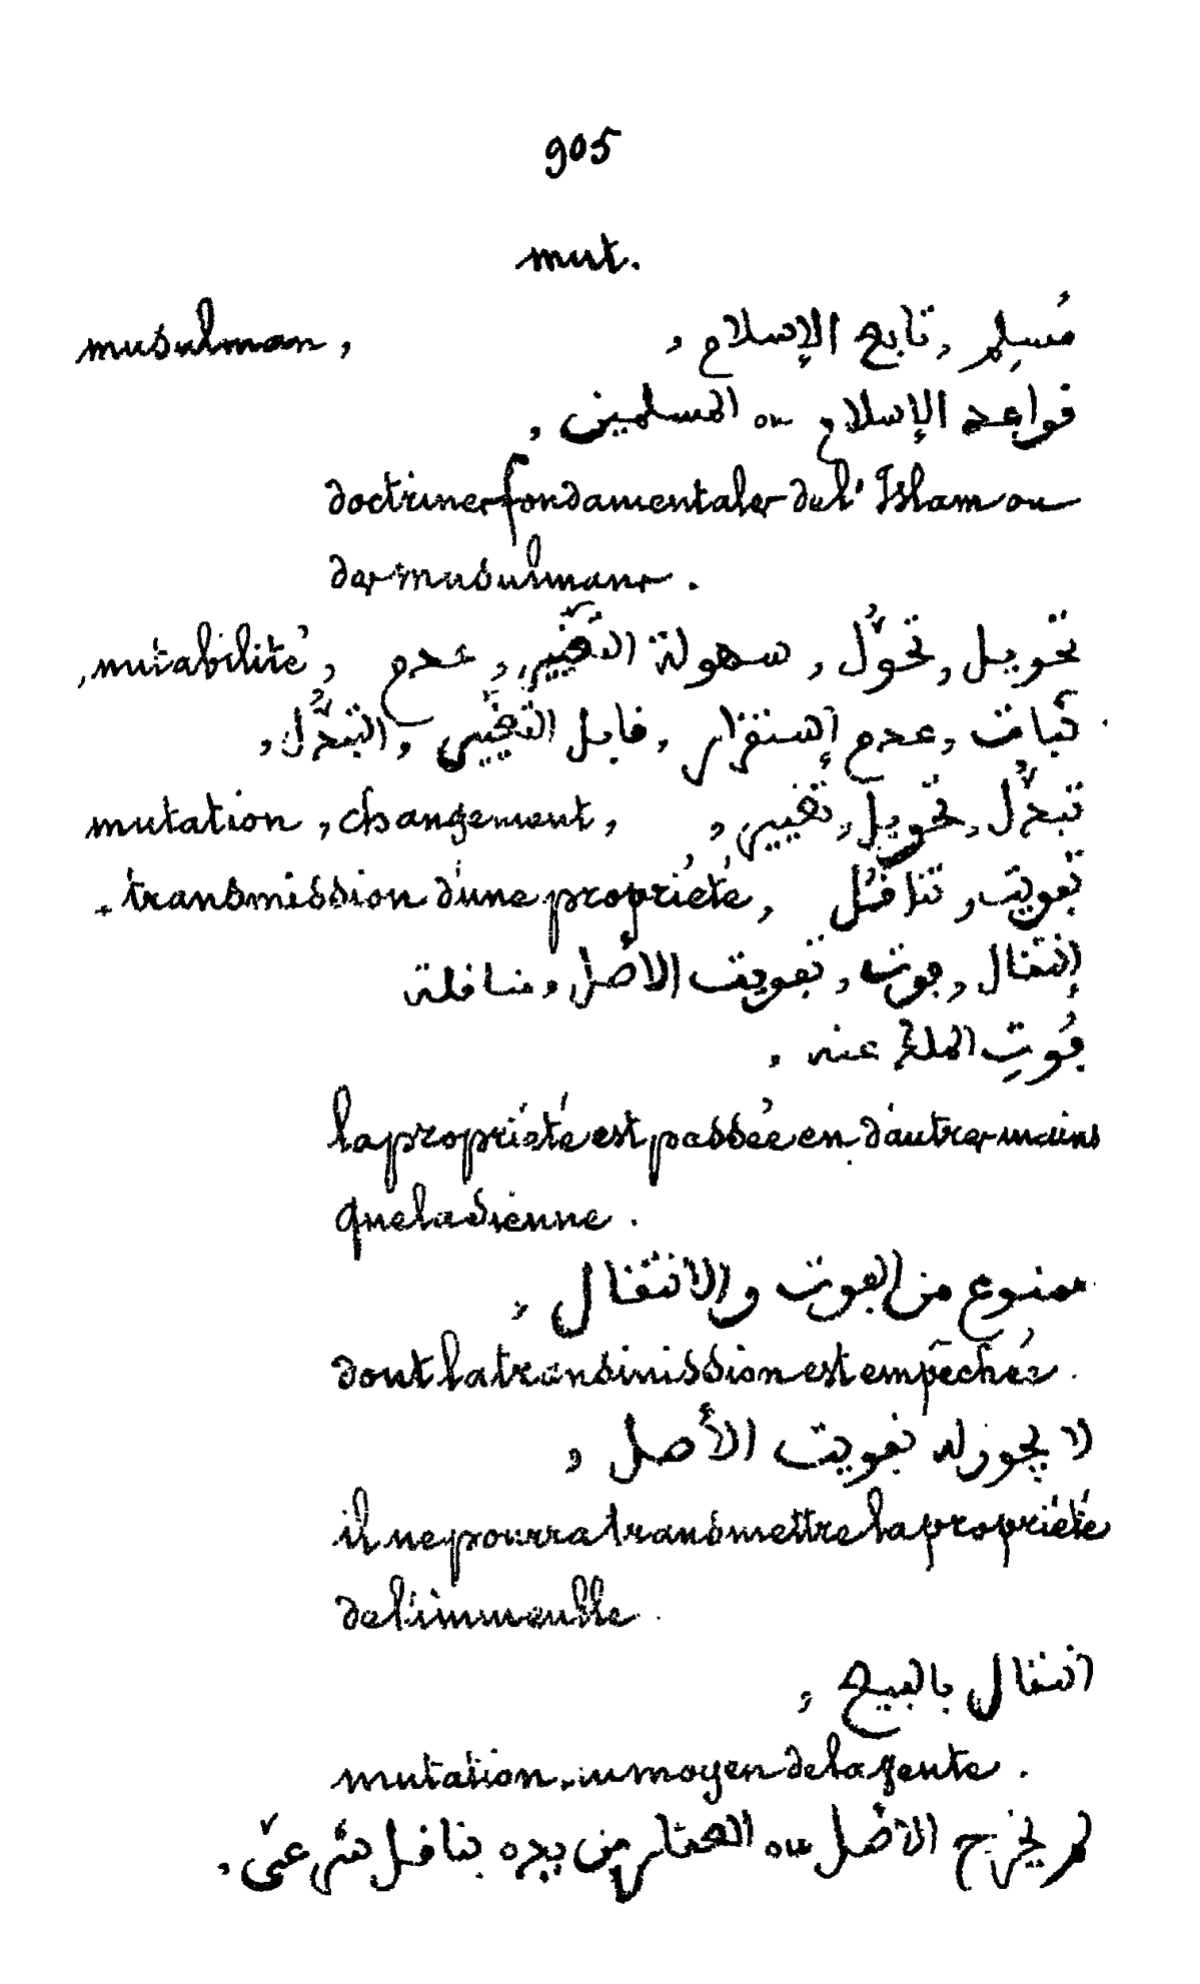 905
mut.
musulman, مُسلِم, تابع الإسلام,
قواعد الإسلام ou المسلمين,
doctrines fondamentales de l'Islam ou
des musulmans.
mutabilité, تحويل, تحوُّل, سهولة التغيّير, عدم
ثبات, عدم إستقرار, قابل التغيّير, التبدُّل,
mutation, changement, تبدُّل, تحويل, تغيير,
transmission d'une propriété, تفويت, تناقُل
إنتقال, فوت, تفويت الأصل, مناقلة
فُوتِ الملك عنه,
la propriété est passée en d'autres mains
que la sienne.
ممنوع من الفوت والانتقال,
dont la transmission est empêchée.
لا يجوز له تفويت الأصل,
il ne pourra transmettre la propriété
de l'immeuble.
انتقال بالبيع,
mutation au moyen de la vente.
لم يخرج الأصل ou العقار من يده بناقل شرعيّ.